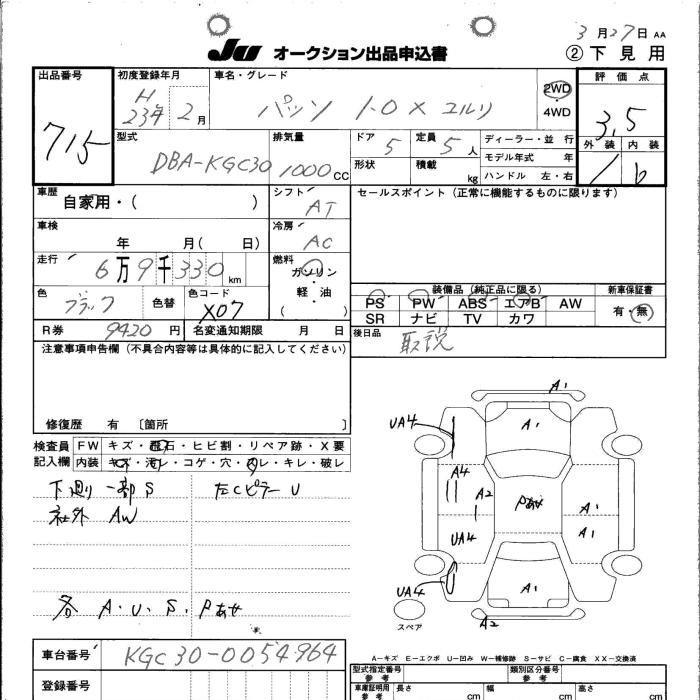 3月27日 AA
JU オークション出品申込書
② 下見用
出品番号 初度登録年月 車名・グレード 評価点
715
H 23年 2月
パッソ 1.0 X ユルリ
2WD
・
4WD
3.5
型式 排気量 ドア 定員 ディーラー・並行 外装 内装
DBA-KGC30 1000CC 5 5人 モデル年式 年
形状 積載 kg ハンドル 左・右
車歴 シフト セールスポイント(正常に機能するものに限ります)
自家用・( ) AT
車検 冷房
年 月( 日) AC
走行 燃料
6万9千330km ガソリン
軽・油
( )
装備品(純正品に限る) 新車保証書
色 色替 色コード
ブラック X07
PS PW ABS エアB AW 有・無
SR ナビ TV カワ
R券 9420円 名変通知期限 月 日 後日品 取説
注意事項申告欄(不具合内容等は具体的に記入してください)
修復歴 有 〔箇所 〕
検査員 FW キズ・飛石・ヒビ割・リペア跡・X要
記入欄 内装 キズ・汚レ・コゲ・穴・スレ・キレ・破レ
下廻り一部S
左CピラーU
社外AW
各 A.U.S.Pあせ
A1
UA4
A1
A4
A2
Pあせ
A1
UA4
A1
UA4
A1
A2
スペア
A-キズ E-エクボ U-凹み W-補修跡 S-サビ C-腐食 XX-交換済
車台番号 KGC30-0054964
型式指定番号 参考
類別区分番号 参考
登録番号
車庫証明用 参考 長さ cm 幅 cm 高さ cm